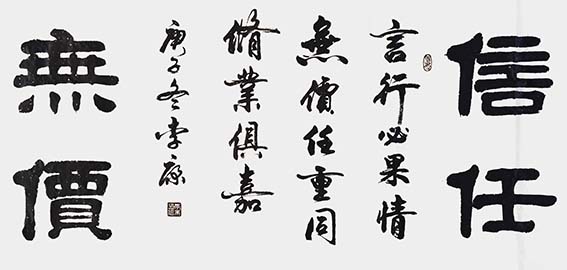 信任
言行必果情
無價任重同
脩業俱嘉
庚子冬李
無價